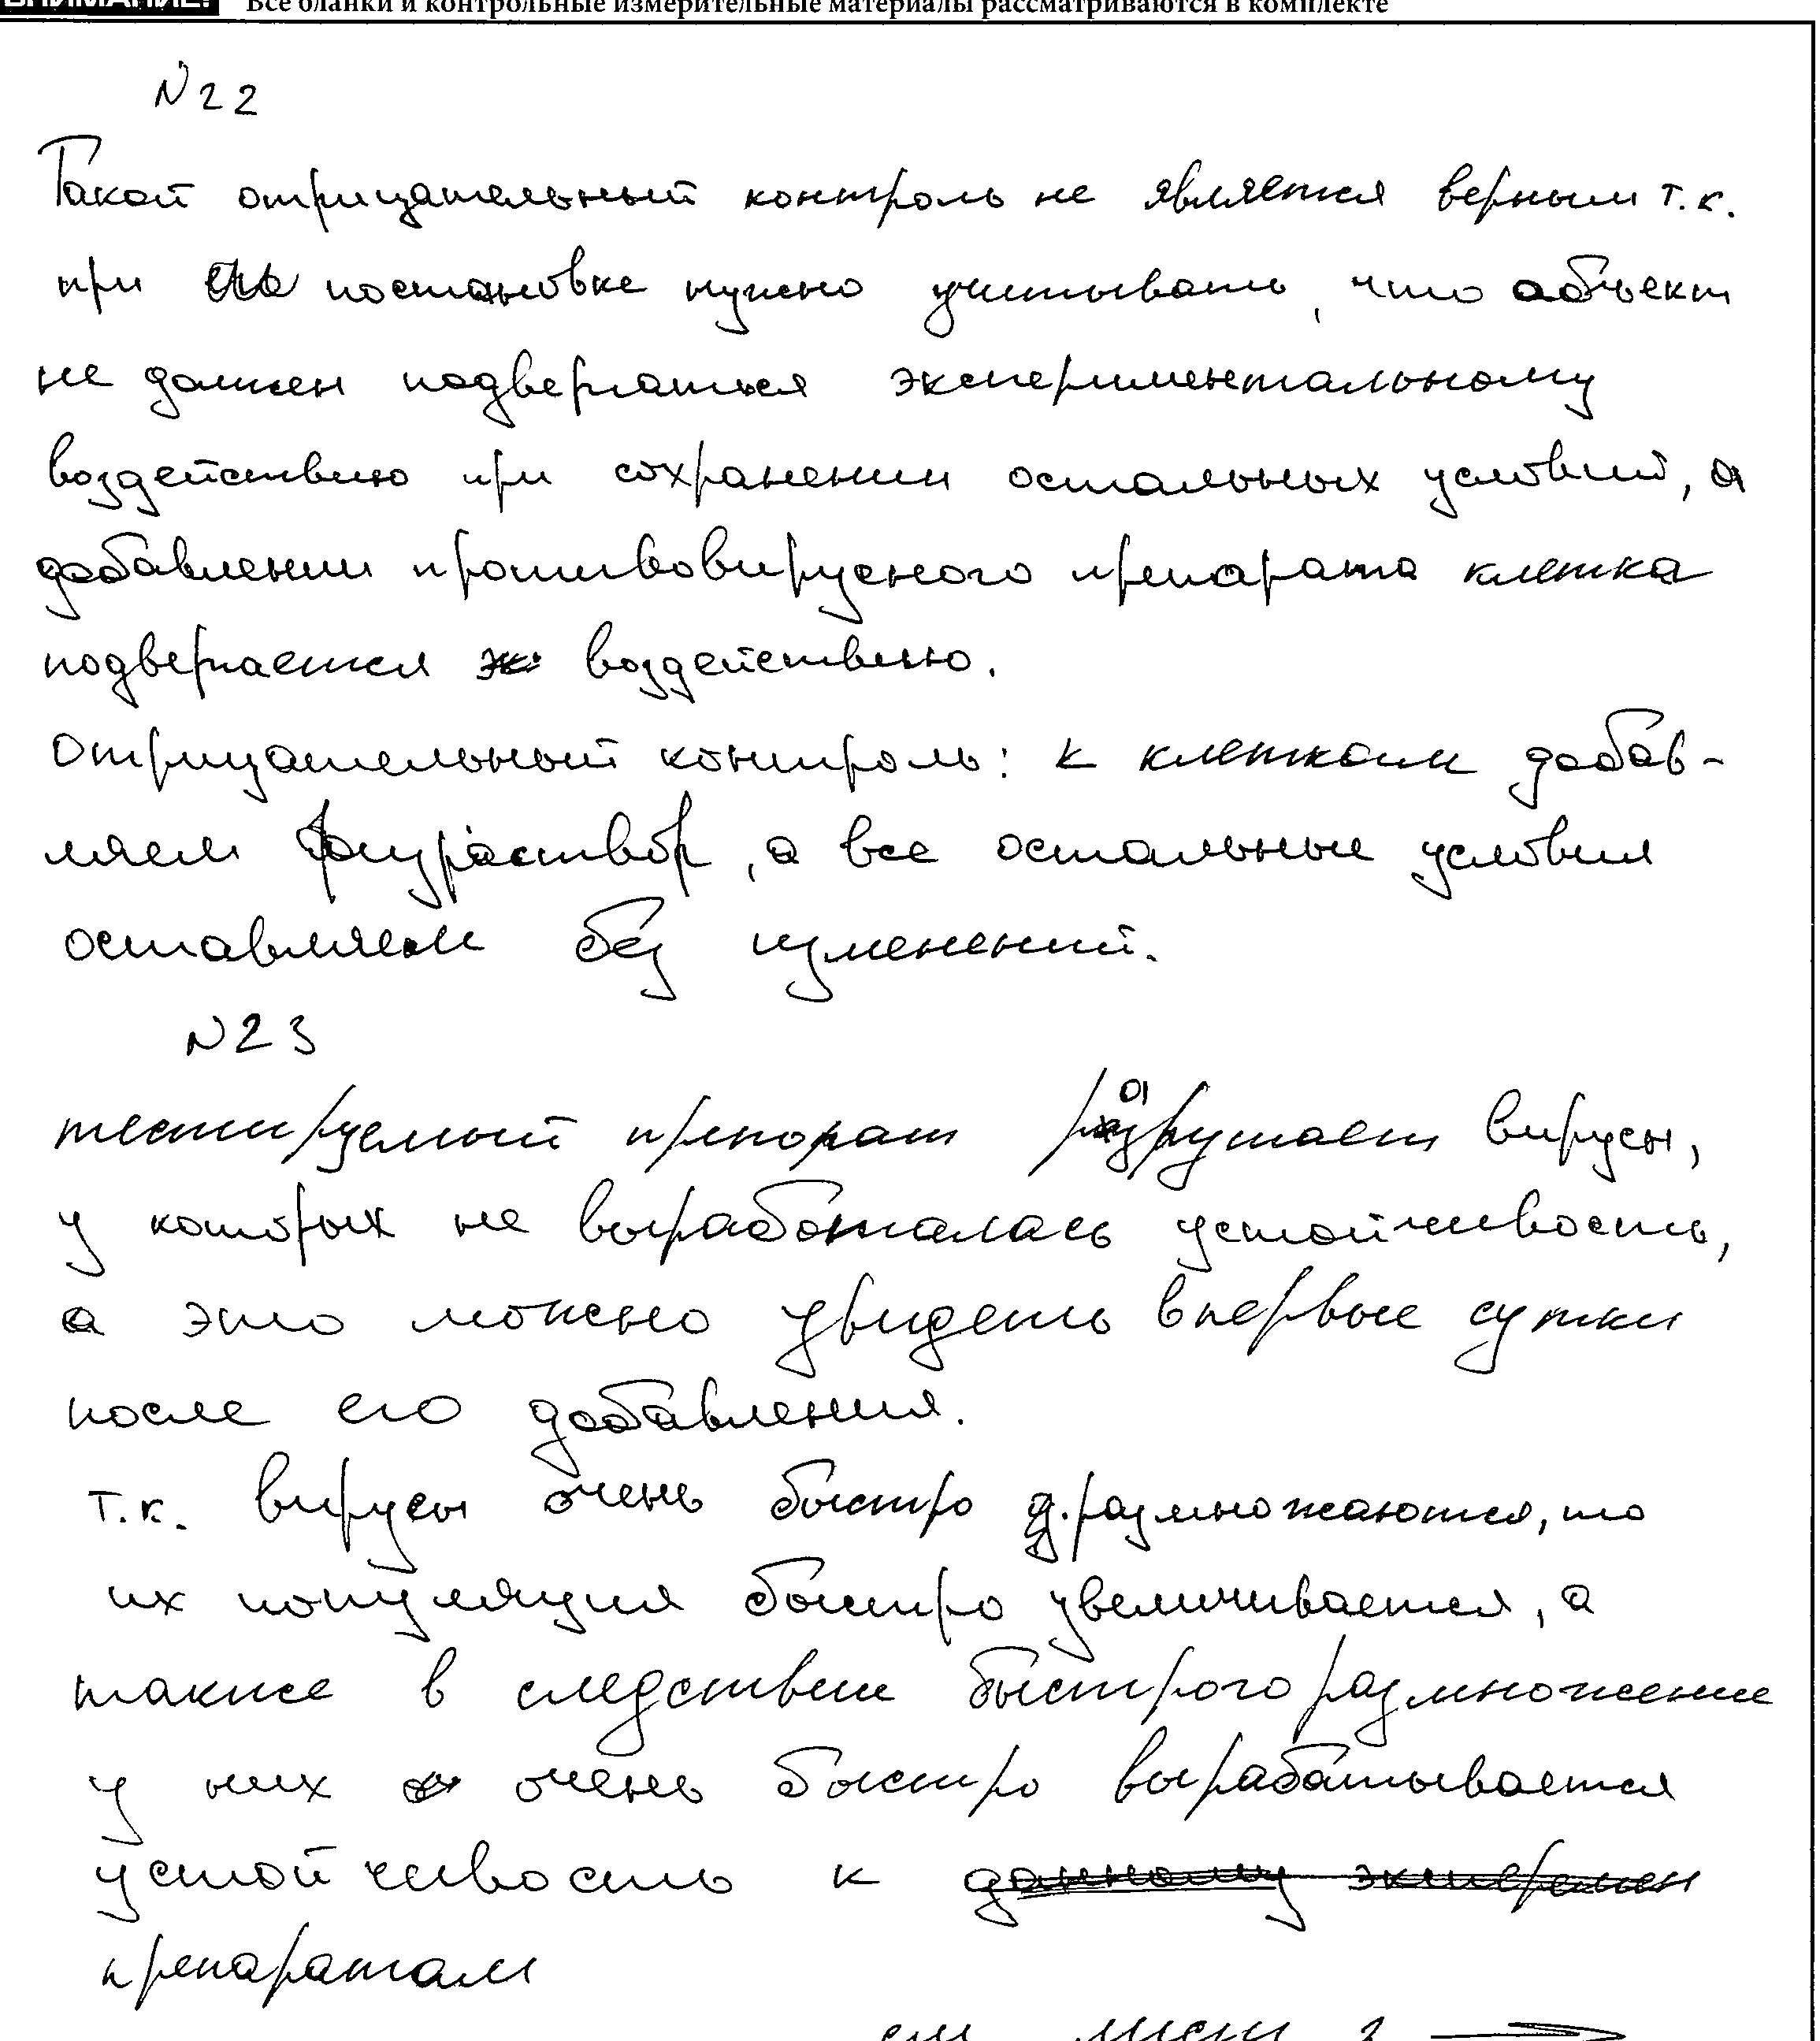 ВНИМАНИЕ! Все бланки и контрольные измерительные материалы рассматриваются в комплекте
N22
Такой отрицательный контроль не является верным т.к.
при постановке нужно учитывать, что объект
не должен подвергаться экспериментальному
воздействию при сохранении остальных условий, а
добавлении противовирусного препарата клетка
подвергается воздействию.
Отрицательный контроль: к клеткам добав-
ляем физраствор, а все остальные условия
оставляем без изменений.
N23
тестируемый препарат разрушает вирусы,
у которых не выработалась устойчивость,
а это можно увидеть впервые сутки
после его добавления.
т.к. вирусы очень быстро размножаются, то
их популяция быстро увеличивается, а
также в следствии быстрого размножение
у них очень быстро вырабатывается
устойчивость к данному эксперемен
препаратам
см. лист 2